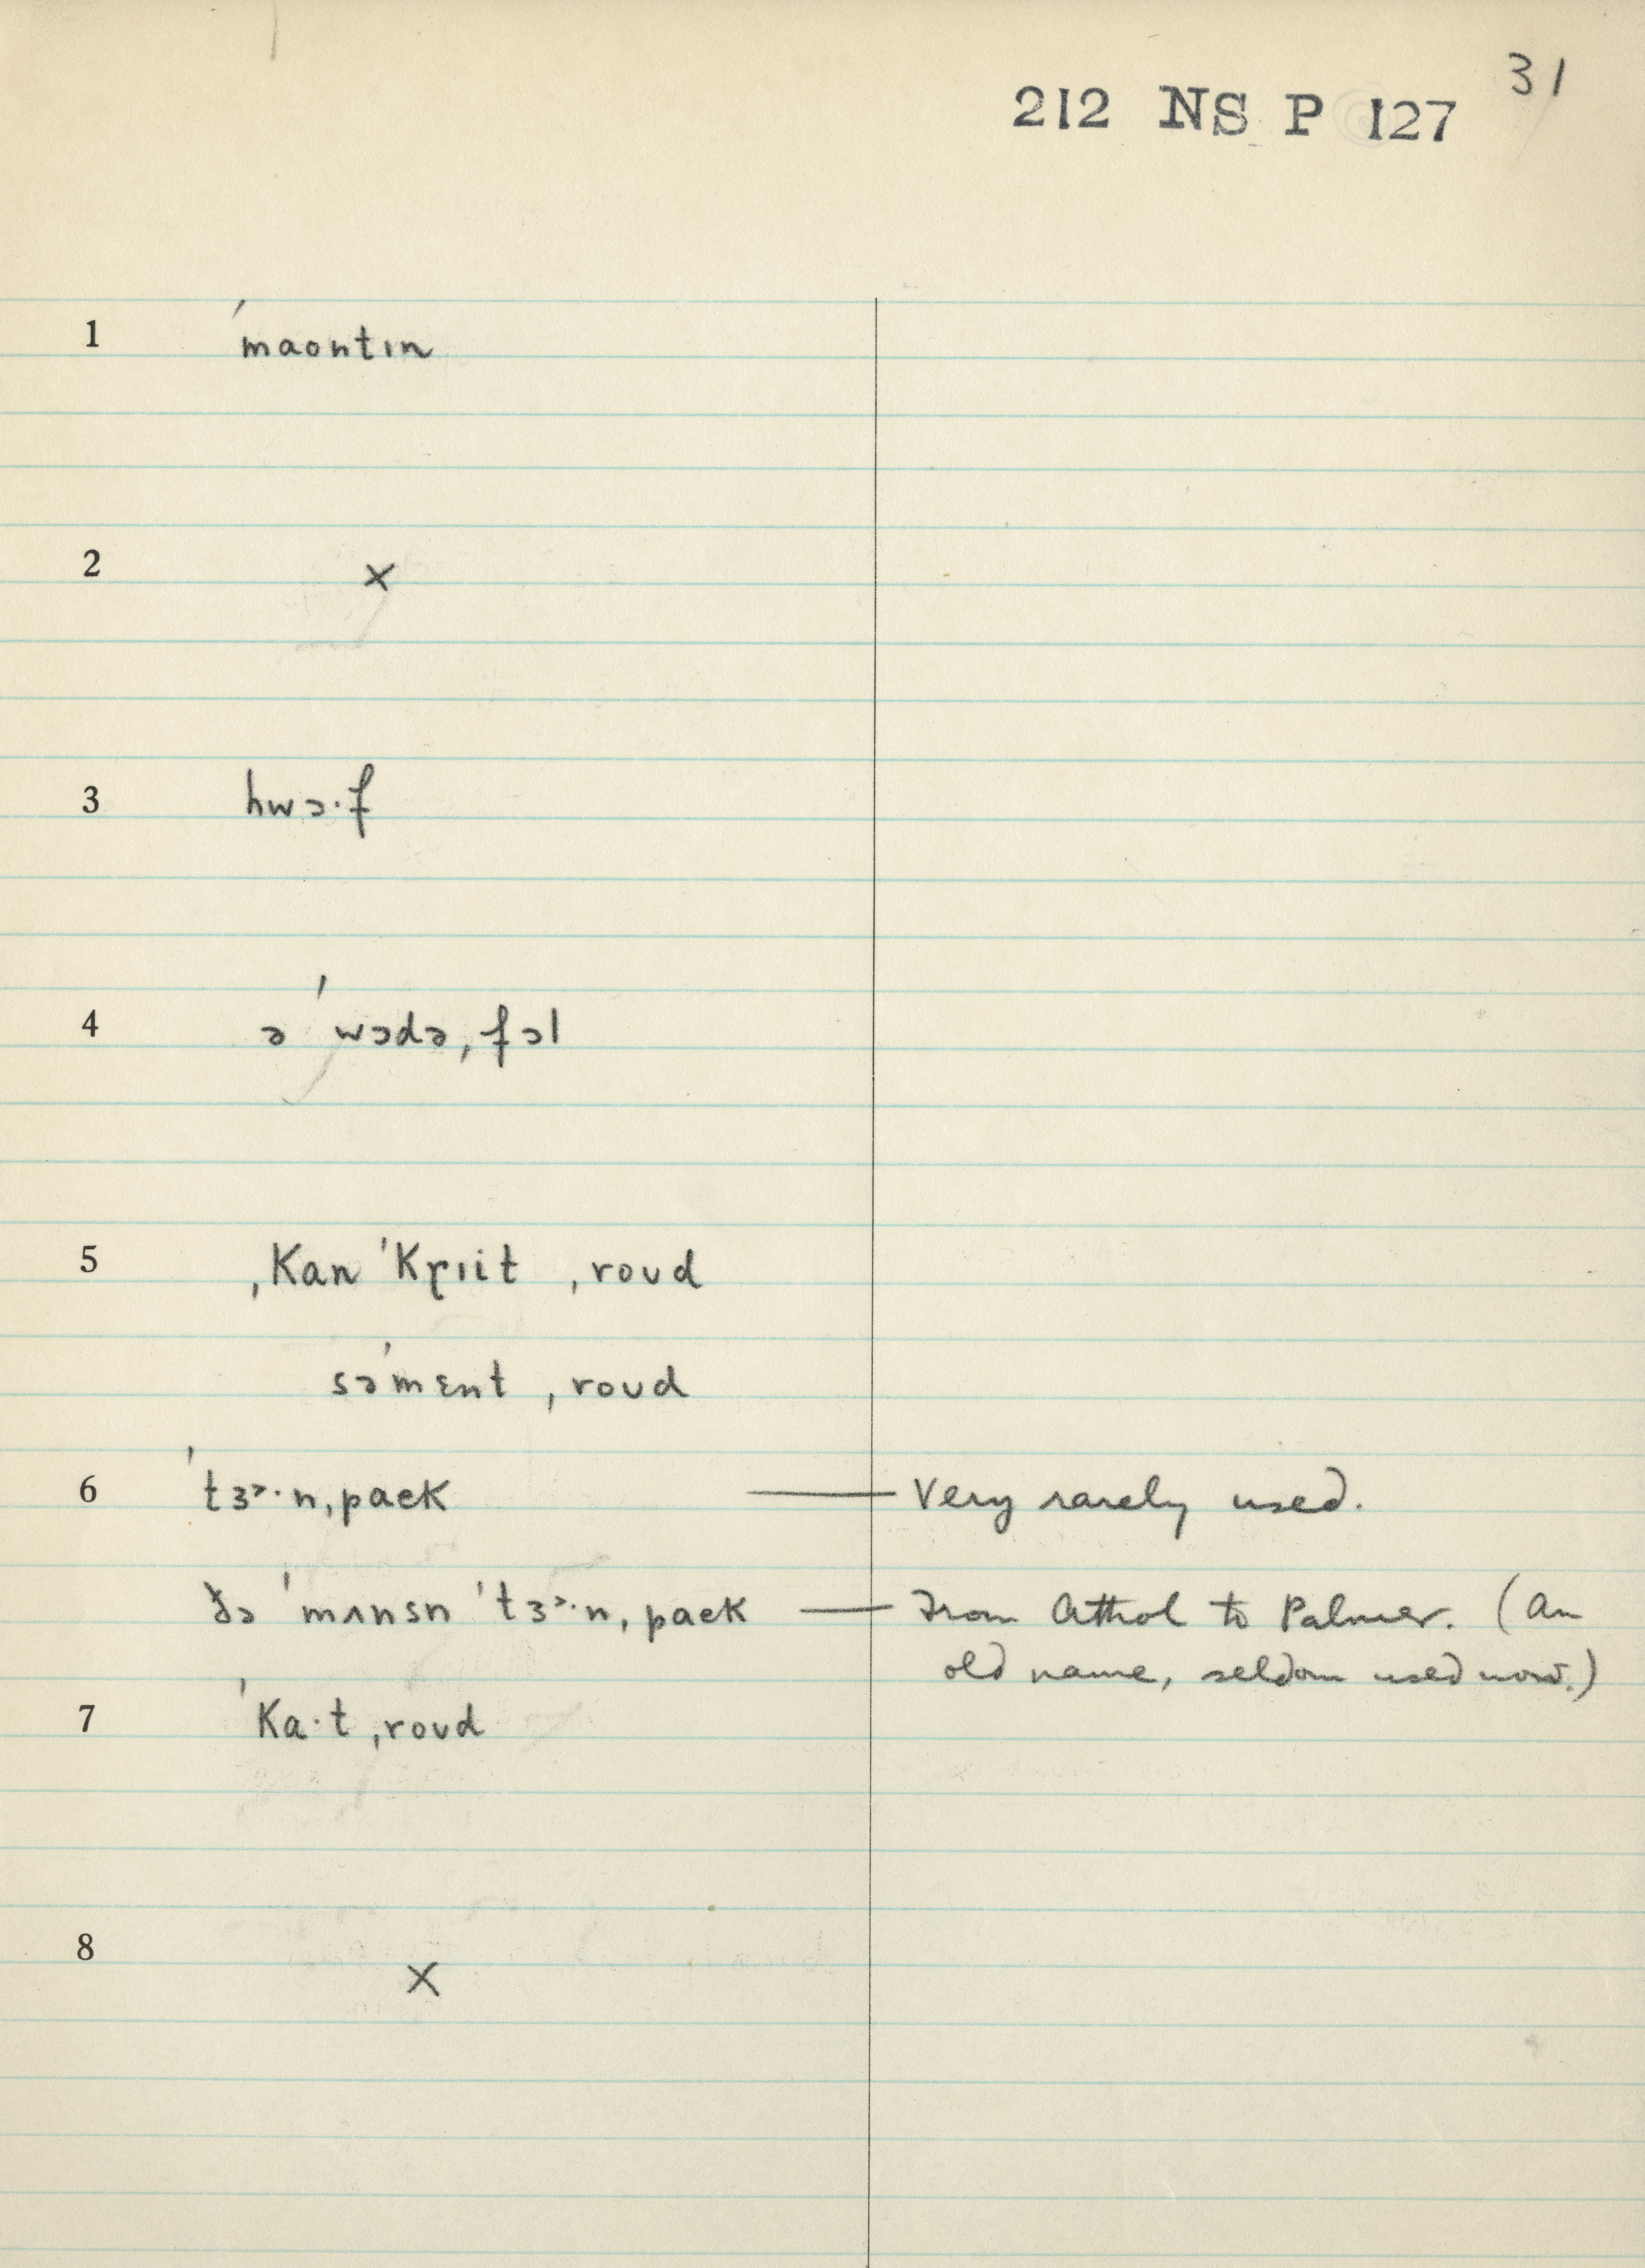 31
212 NS P 127
1 ˈmaontɪn
2 ×
3 hwɔ·f
4 ə ˈwɔdəˌfɔl
5 ˌkanˈkrɪit ˌroʊd
səˈmɛnt ˌroʊd
6 ˈtɜɚ·nˌpaɛk — Very rarely used.
ðə ˈmʌnsn ˈtɜɚ·nˌpaɛk — From Athol to Palmer. (An
old name, seldom used now.)
7 ˈka·t ˌroʊd
8 ×